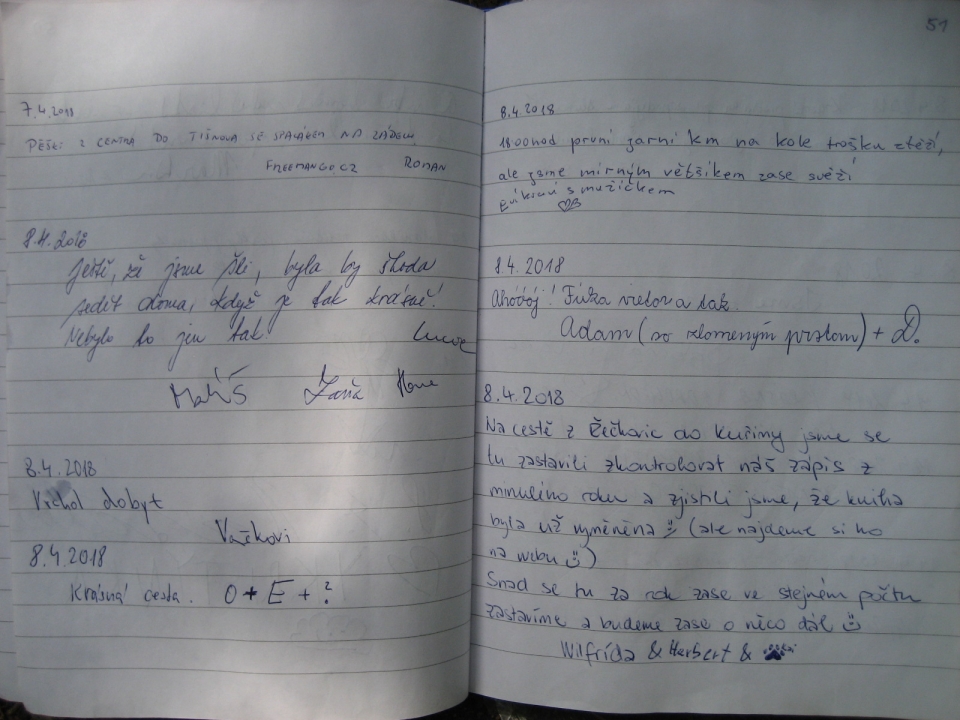 7.4.2018
PĚŠKY Z CENTRA DO TIŠNOVA SE SPACÁKEM NA ZÁDECH
FREEMANGO.CZ ROMAN
8.4.2018
Ještě, že jsme šli, byla by škoda
sedět doma, když je tak krásně!
Nebylo to jen tak!
Matěj
8.4.2018
Vrchol dobyt
Vačkovi
8.4.2018
Krásná cesta. O + E + ?
51
8.4.2018
první jarní km na kole trošku ztěží,
ale jsme mírným větříkem zase svěží
s mužíčkem
8.4.2018
Ahóóój! Fúka vietor a tak
Adam (so zlomeným prstom) + D.
8.4.2018
Na cestě z Řečkovic do Kuřimy jsme se
tu zastavili zkontrolovat náš zápis z
minulého roku a zjistili jsme, že kniha
byla už vyměněna (ale najdeme si ho
na webu)
Snad se tu za rok zase ve stejném počtu
zastavíme a budeme zase o něco dál
Wilfrída & Herbert &